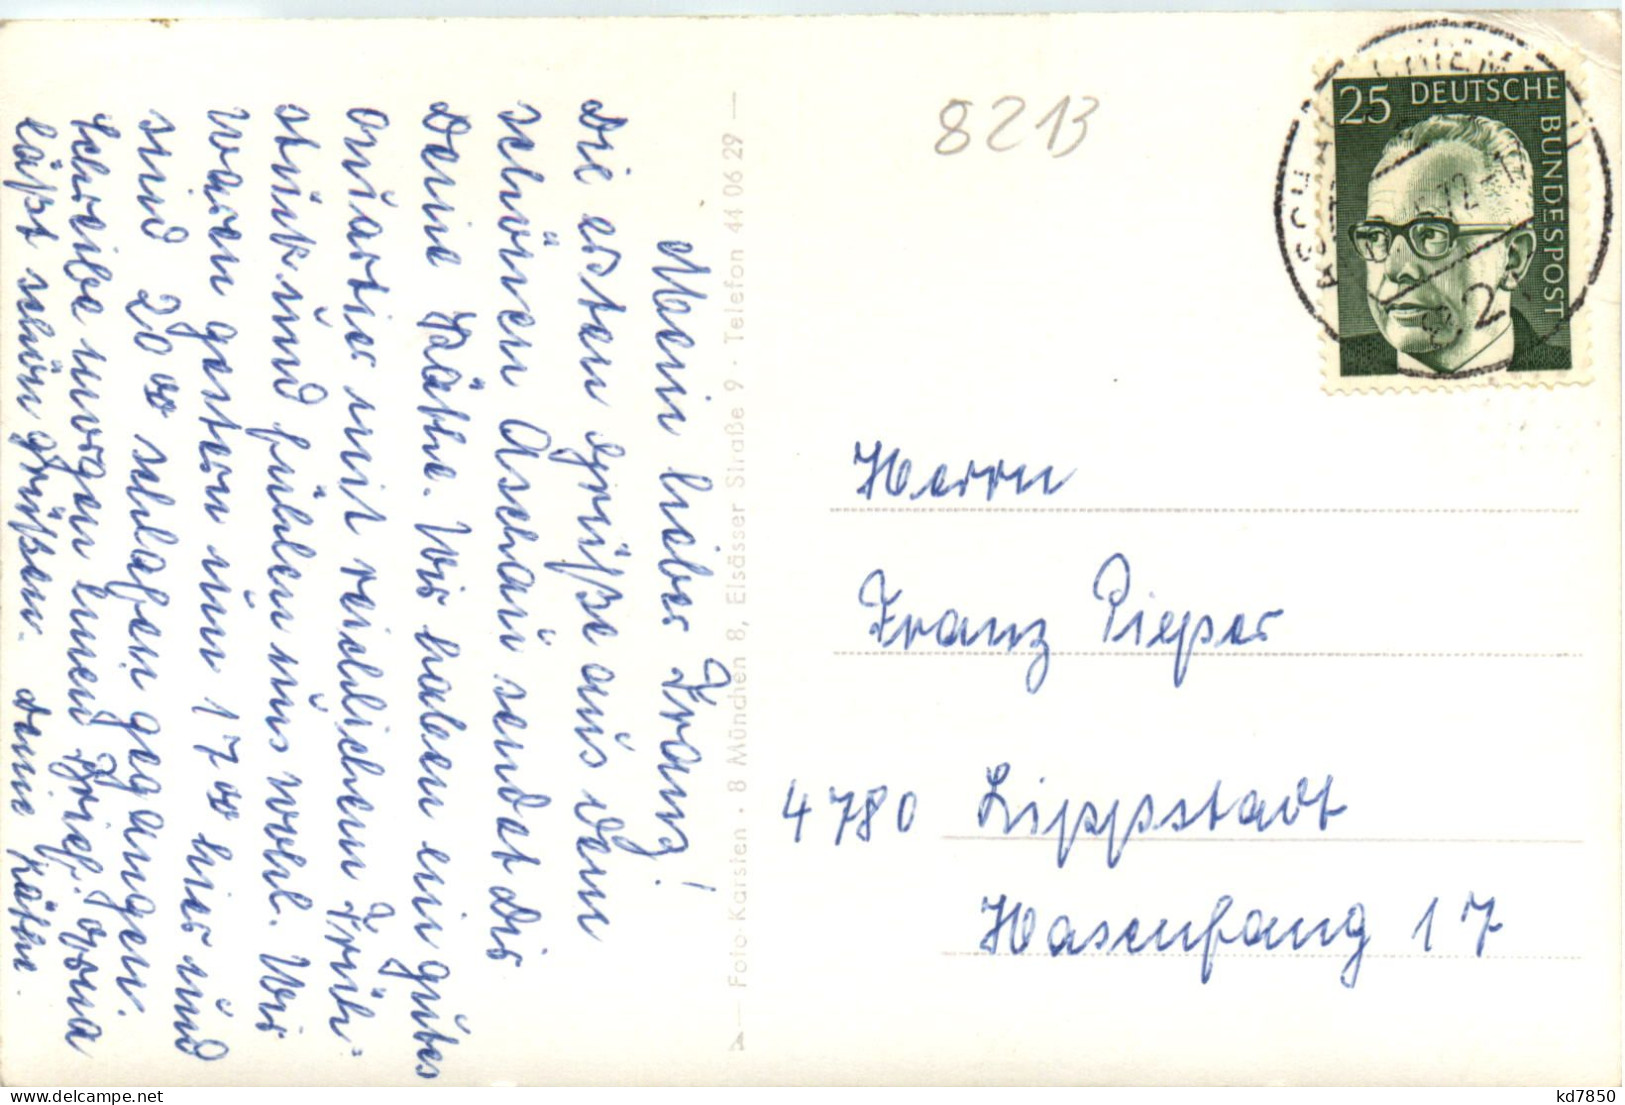 Mein lieber Franz!
Die ersten Grüße aus dem
schönen Aschau sendet dir
deine Käthe. Wir haben ein gutes
Quartier mit reichlichem Früh-
stück und fühlen uns wohl. Wir
waren gestern um 17⁰⁰ hier und
sind 20⁰⁰ schlafen gegangen.
Schreibe morgen einen Brief. Oma
läßt schön grüßen. Deine Käthe.
Foto-Karsten · 8 München 8, Elsässer Straße 9 · Telefon 44 06 29
8213
25 DEUTSCHE
BUNDESPOST
ASCHAU
Herrn
Franz Pieper
4780 Lippstadt
Hasenfang 17
kd7850